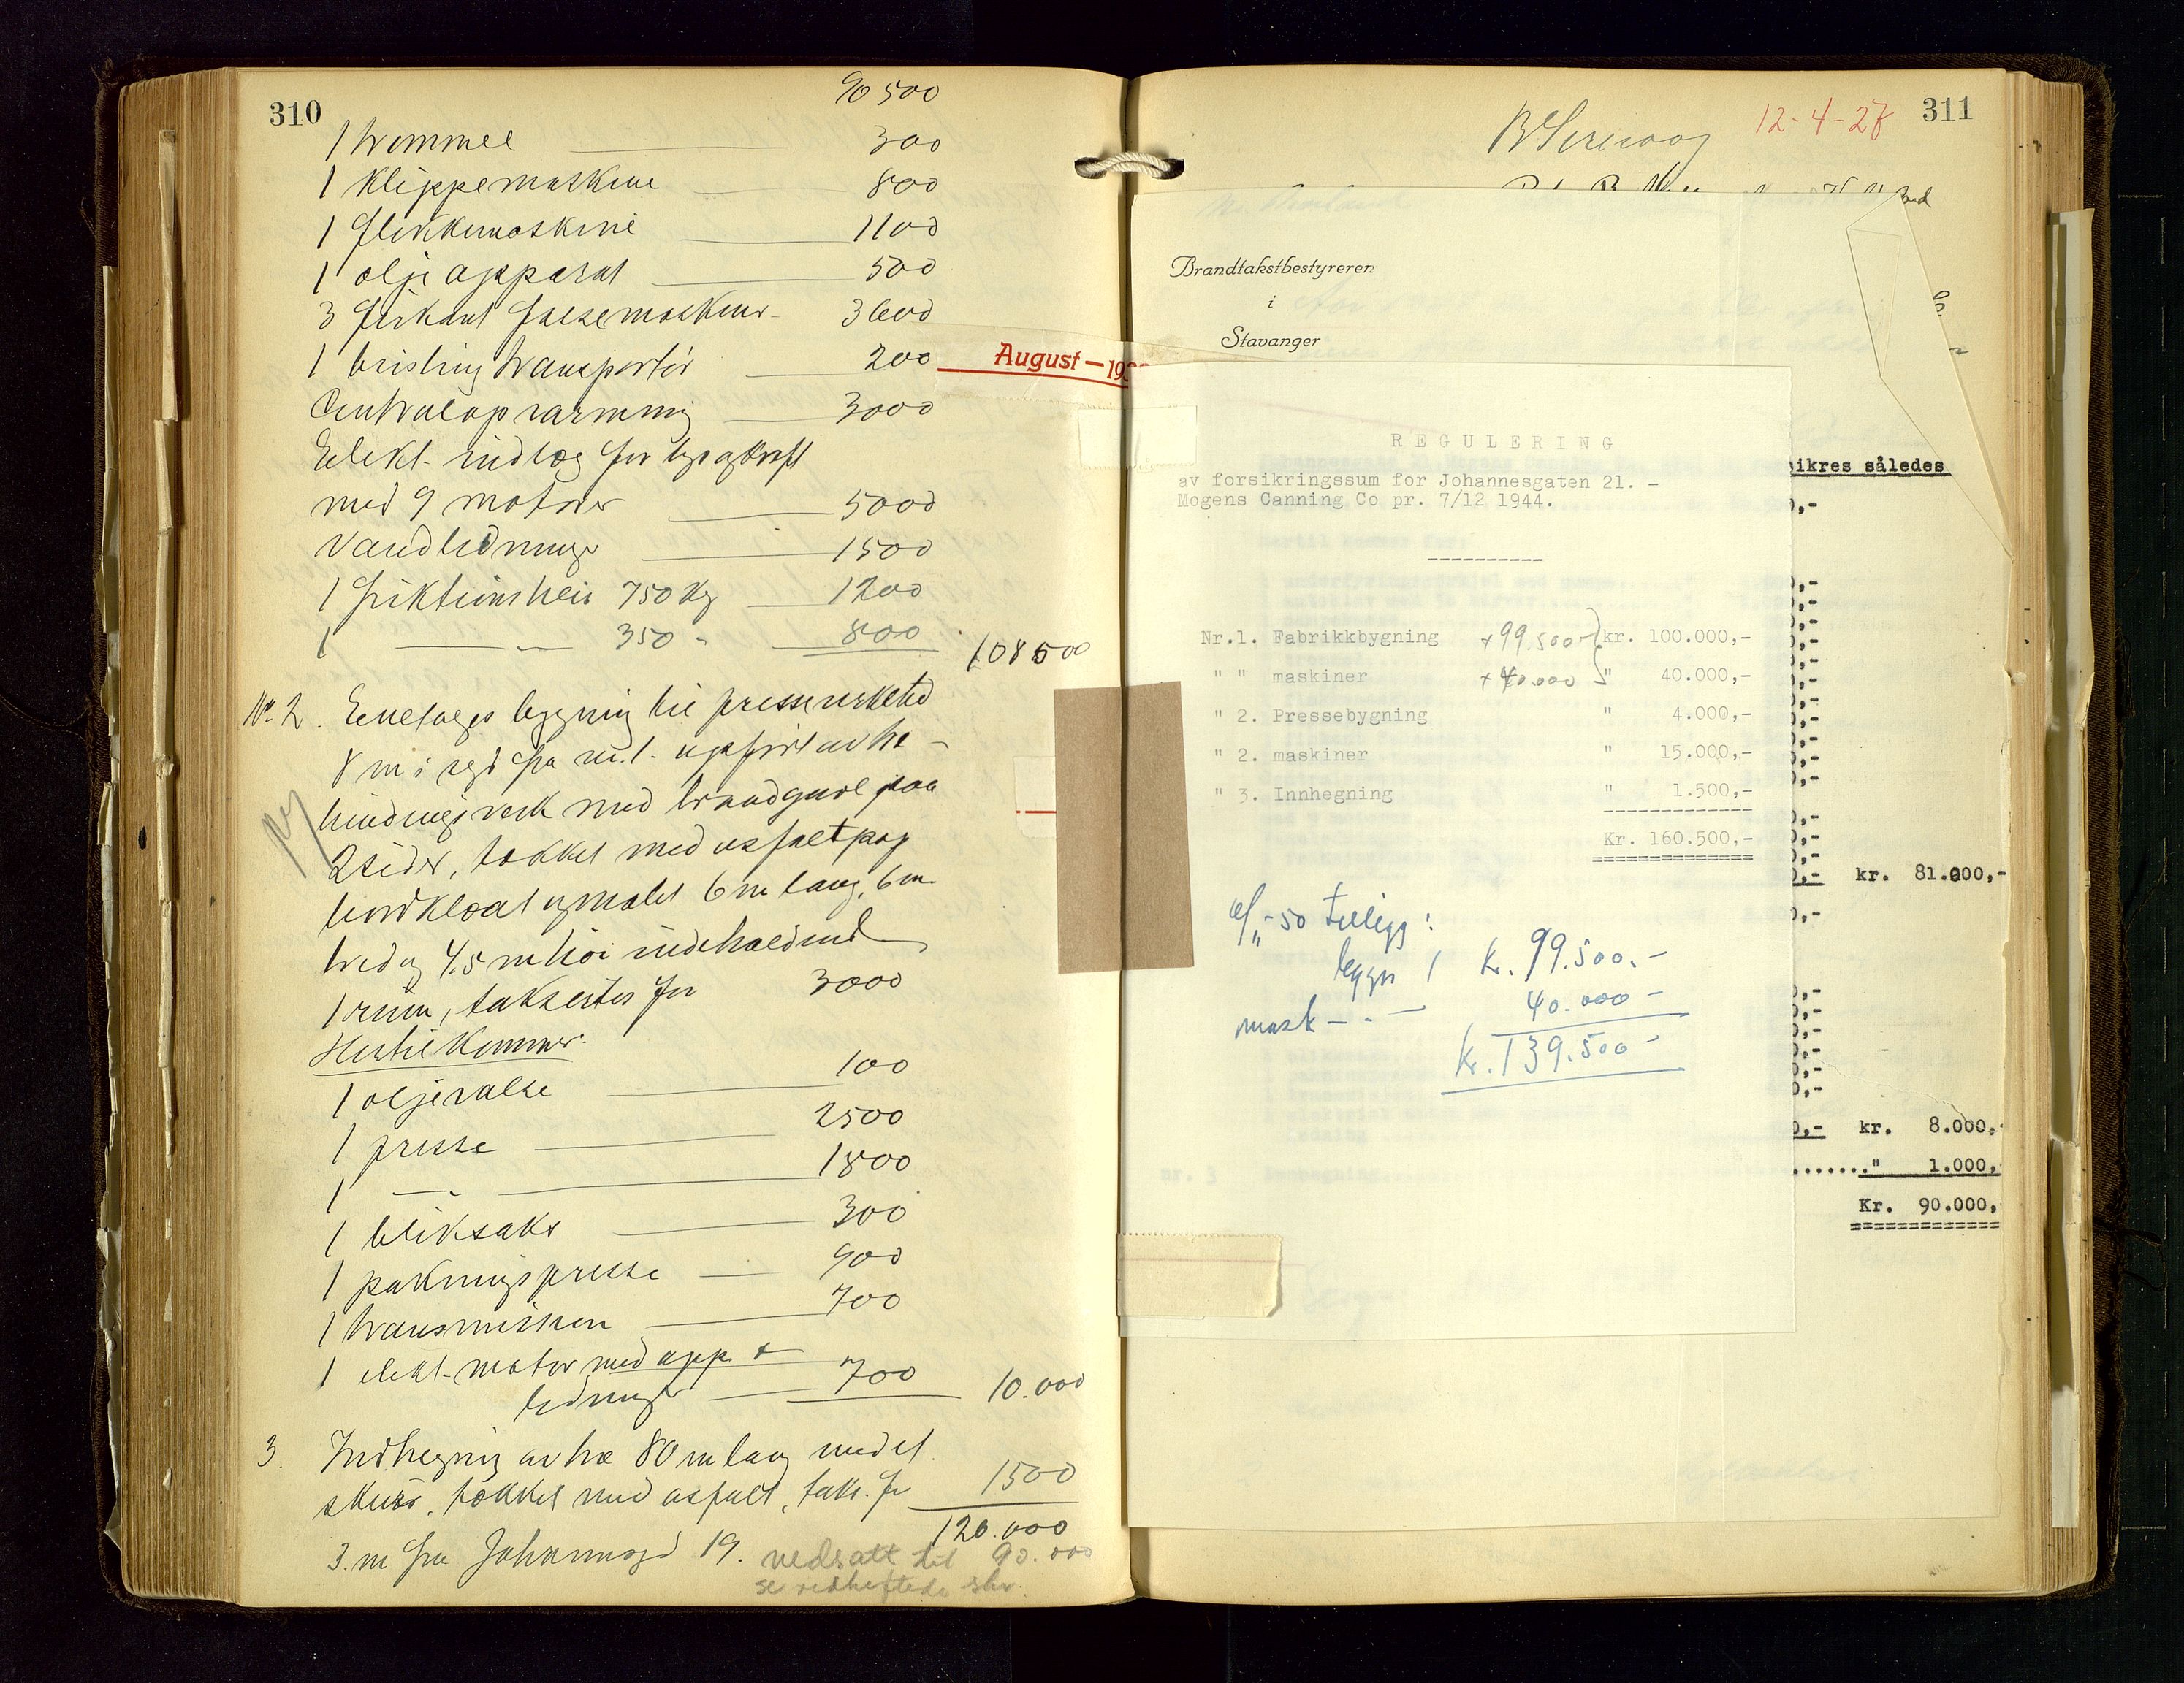 310
90 500
1 trommel 300
1 Klippemaskine 800
1 flikkemaskine 1100
1 olje apparat 500
3 firkant falsemaskiner 3600
1 brisling transportör 200
Centralopvarming 3000
Elekt. indlæg for lys og kraft
med 9 motorer 5000
Vandledninger 1500
1 friktionsheis 750 kg 1200
1 — " — 350 " 800
108 500
No. 2. Eenetages bygning til presseverksted
8 m i syd fra nr. 1. opført av træ -
bindingsverk med brandgavl paa
2 sider, tækket med asfaltpap
bordklædt og malet 6 m lang, 6 m
bred og 4.5 m høi indeholdende
1 rum, takseres for 3000
Hertil kommer:
1 oljevalse 100
1 presse 2500
1 — " — 1800
1 bliksaks 300
1 pakningspresse 900
1 transmission 700
1 elekt. motor med app. &
ledninger 700
10.000
3. Indhegning av træ 80 m lang med et
skur, tækket med asfalt, taks. for 1500
120.000
3. m fra Johannesgd 19.
nedsatt til 90.000
se vedheftede skr.
August — 19
12-4-27
311
Brandtakstbestyreren
i
Stavanger
REGULERING
av forsikringssum for Johannesgaten 21. -
Mogens Canning Co pr. 7/12 1944.
Nr.1. Fabrikkbygning +99.500- kr. 100.000,-
" " maskiner +40.000 " 40.000,-
" 2. Pressebygning " 4.000,-
" 2. maskiner " 15.000,-
" 3. Innhegning " 1.500,-
Kr. 160.500,-
50 tillegg:
bygn 1 kr. 99.500.-
mask - " - 40.000 -
kr. 139.500 -
ikres således
kr. 81.000,-
kr. 8.000,
......." 1.000,
Kr. 90.000,